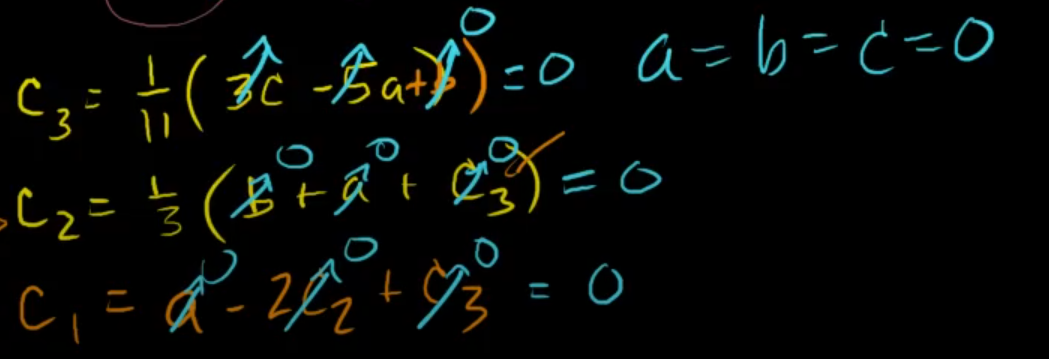 c₃ = 1/11 (3c - 5a + b) = 0 0 a = b = c = 0
c₂ = 1/3 (b + a + c₃) = 0 0 0 0
c₁ = a - 2c₂ + c₃ = 0 0 0 0